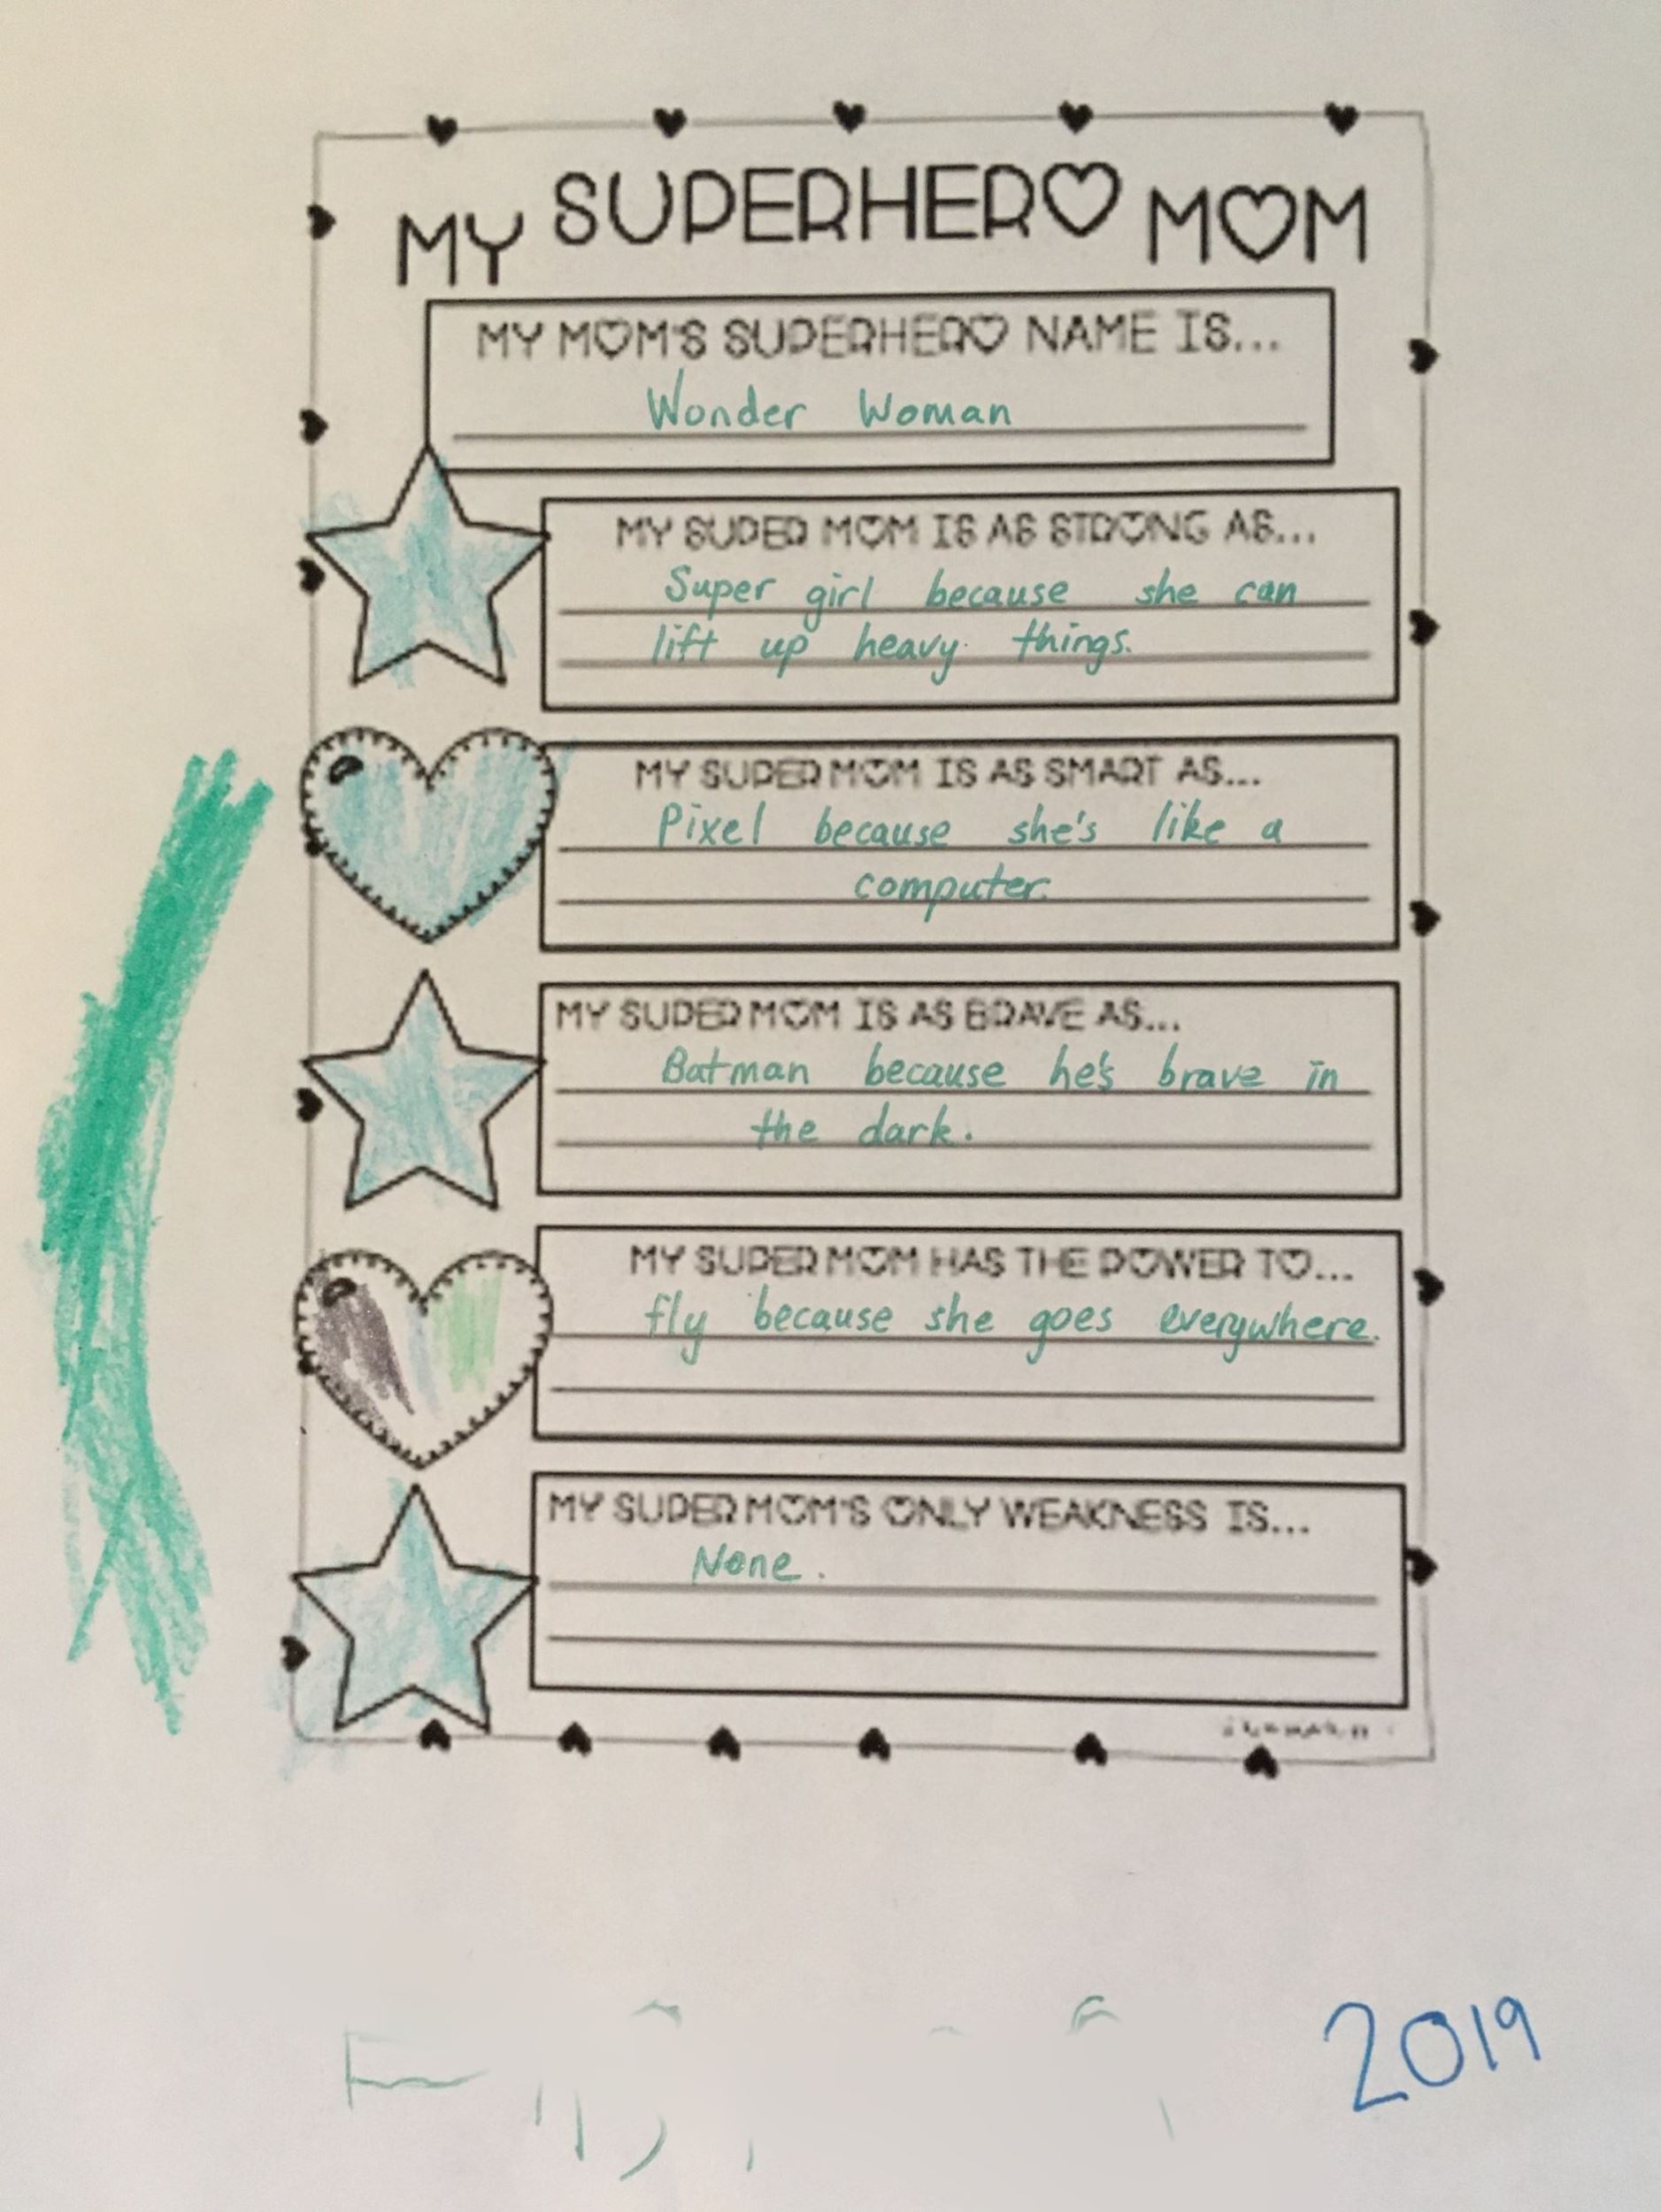 MY SUPERHERO MOM
MY MOM'S SUPERHERO NAME IS...
Wonder Woman
MY SUPER MOM IS AS STRONG AS...
Super girl because she can
lift up heavy things.
MY SUPER MOM IS AS SMART AS...
Pixel because she's like a
computer.
MY SUPER MOM IS AS BRAVE AS...
Batman because he's brave in
the dark.
MY SUPER MOM HAS THE POWER TO...
fly because she goes everywhere.
MY SUPER MOM'S ONLY WEAKNESS IS...
None.
2019